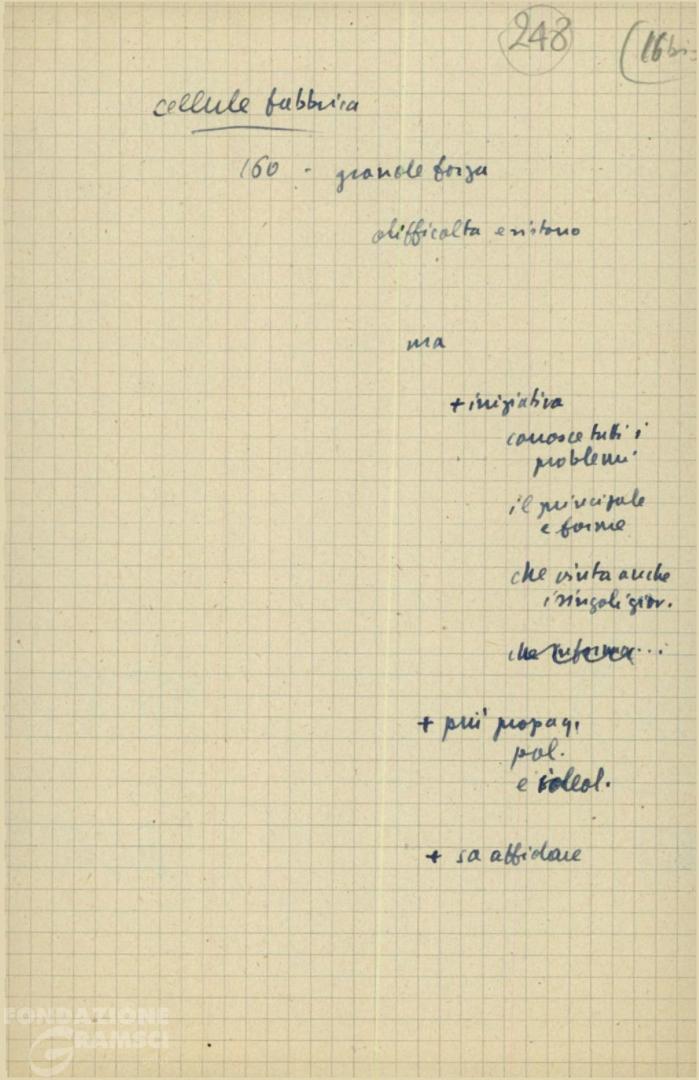 248
(16 bis
cellule fabbrica
160 - grande forza
difficolta esistono
ma
+ iniziativa
conosce tutti i
problemi
il principale
e forme
che aiuta anche
i singoli giov.
che informa...
+ più propag.
pol.
e ideol.
+ sa affidare
FONDAZIONE
GRAMSCI